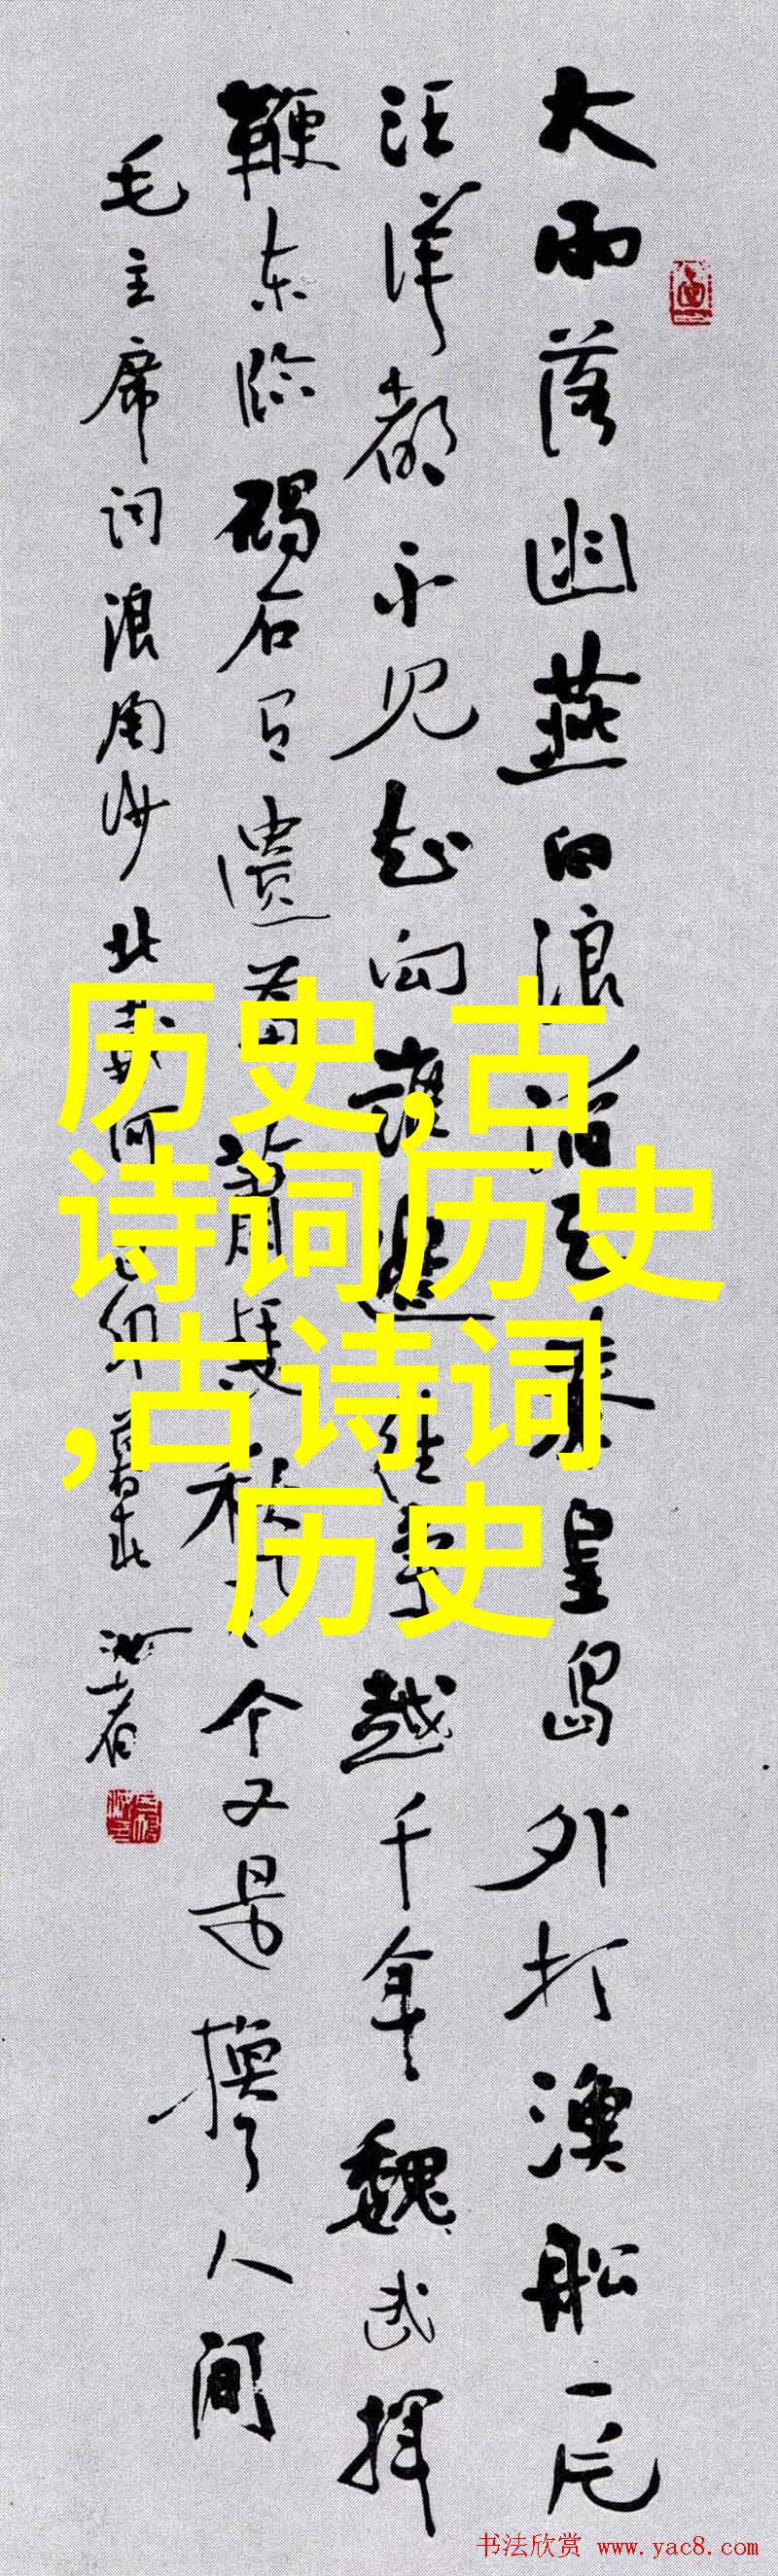 大雨落幽燕白浪滔天秦皇島外打漁船一片
汪洋都不见知向谁邊往事越千年魏武揮
鞭东临碣石有遗篇蕭瑟秋风今又是换了人间
毛主席词浪淘沙北戴河己卯暮春
历史,古
诗词历史
,古诗词
历史
书法欣赏 www.yac8.com